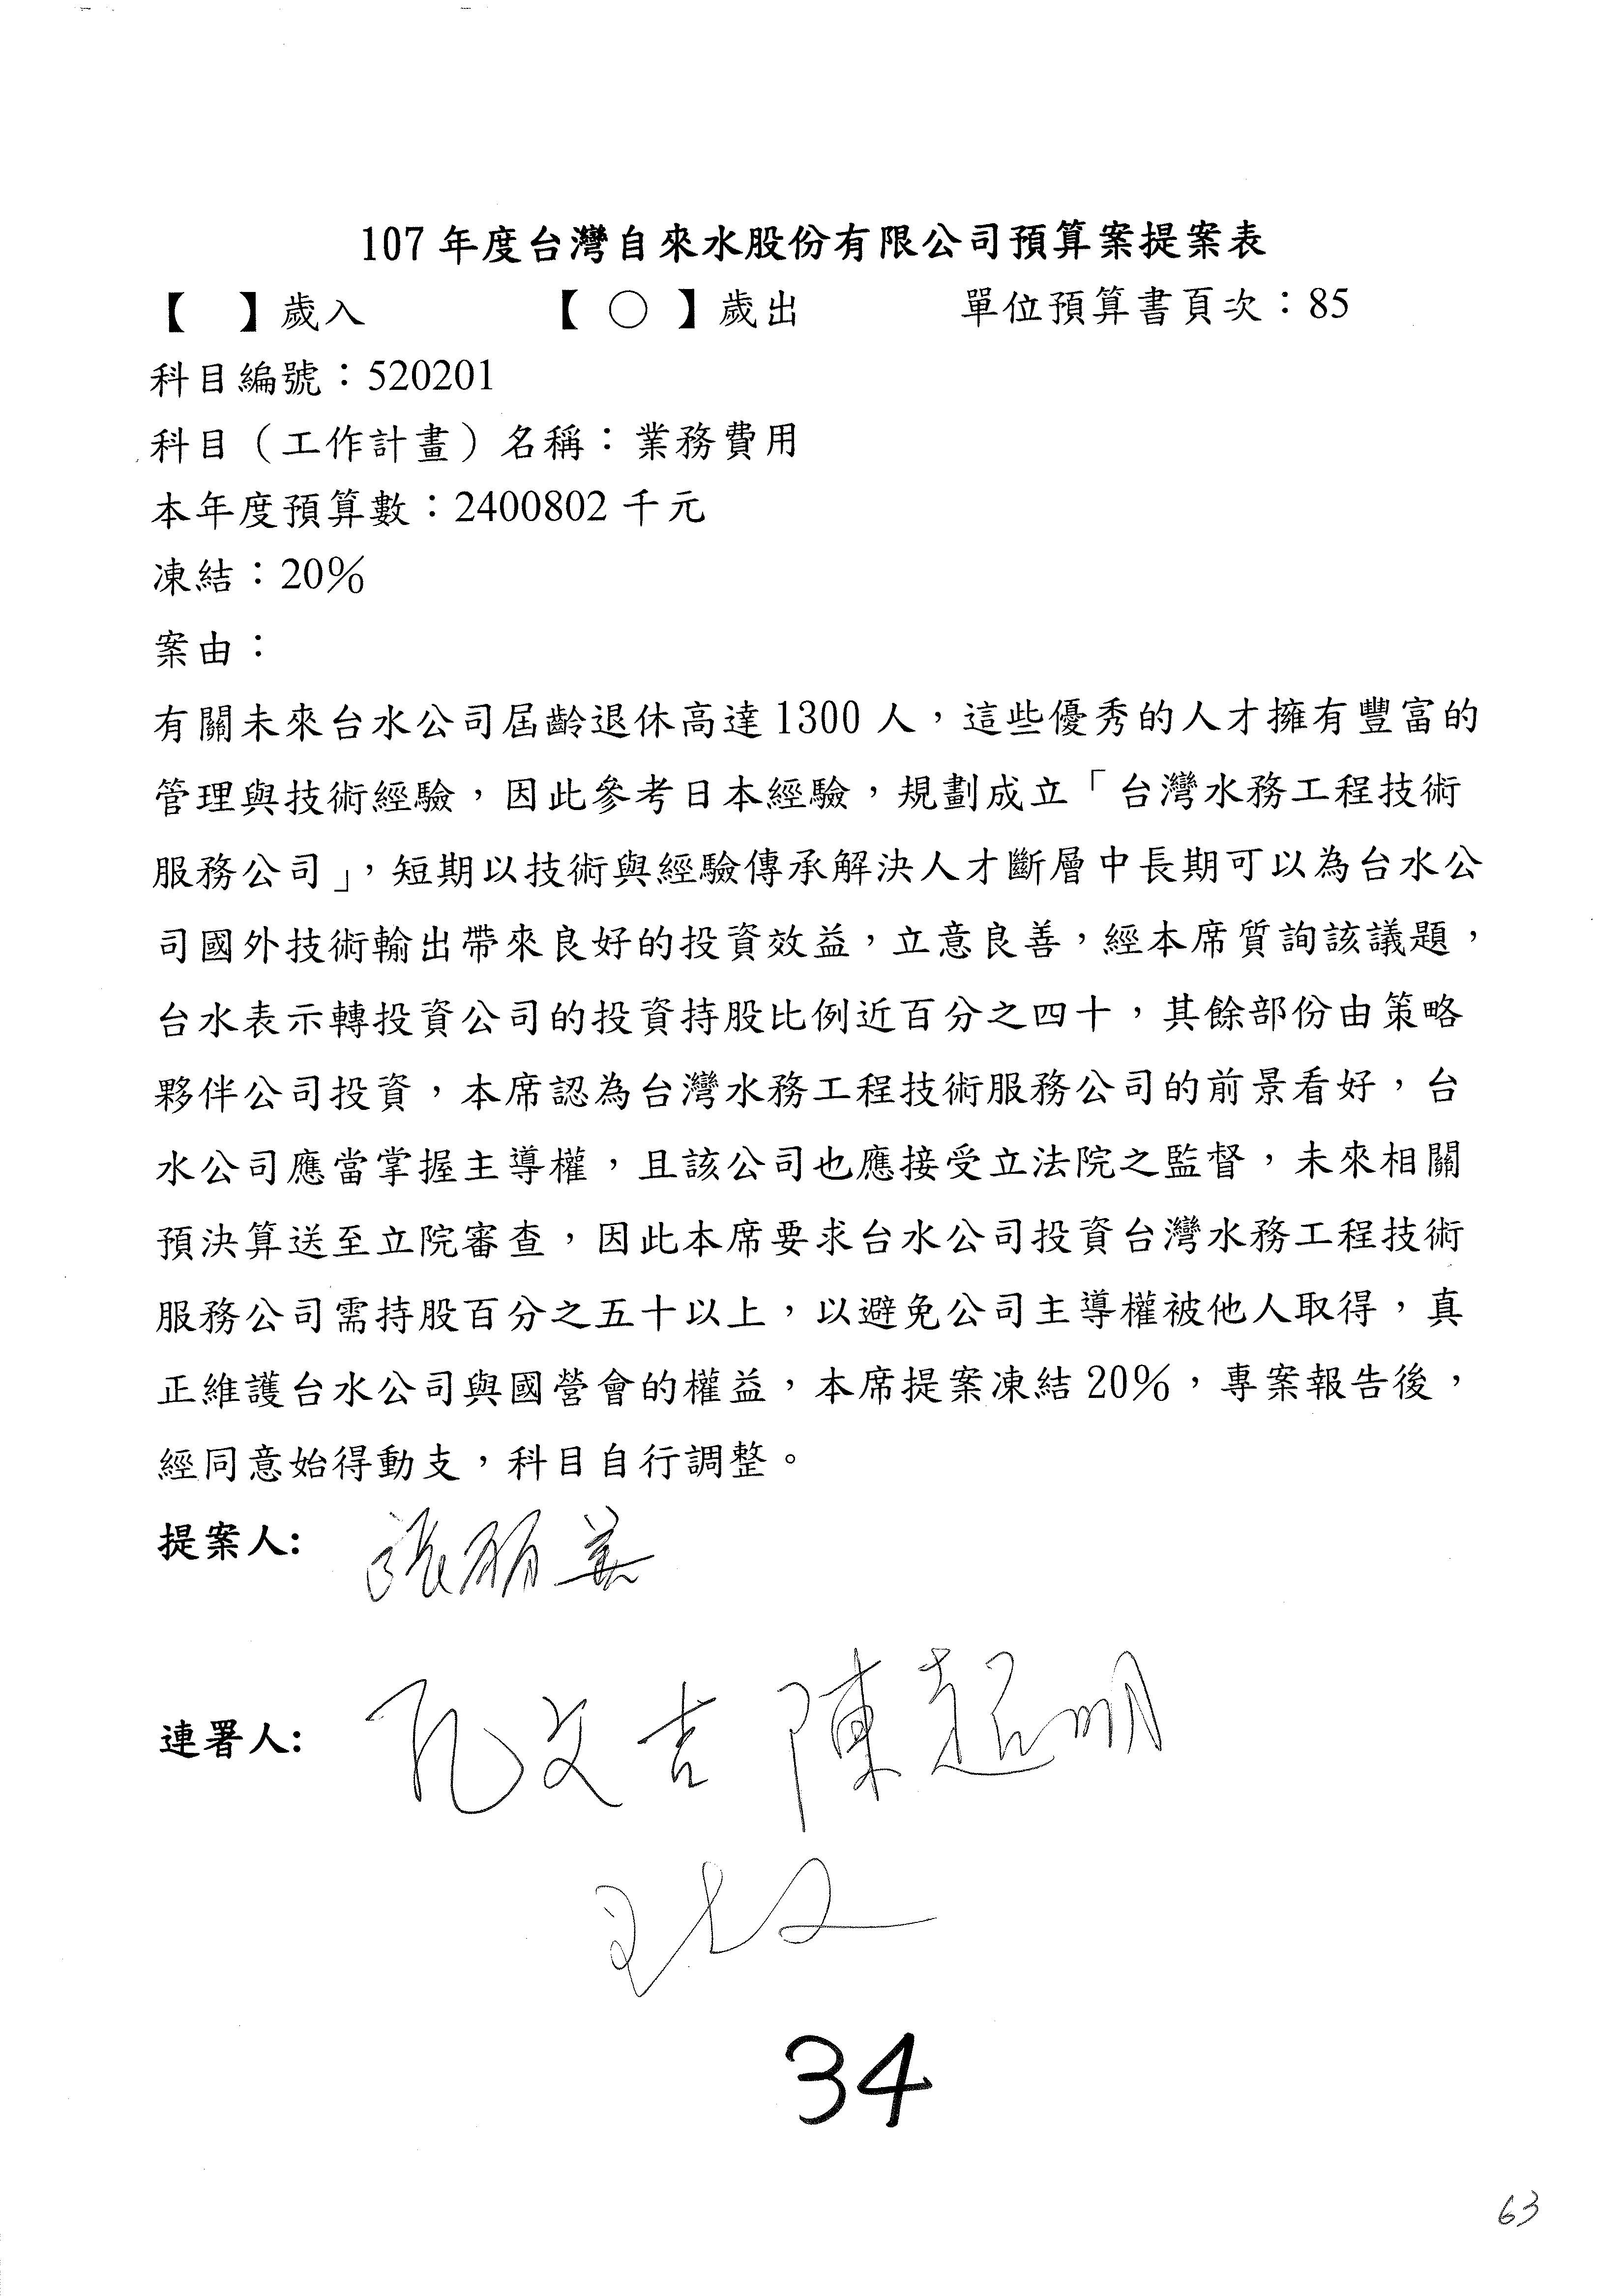 107 年度台灣自來水股份有限公司預算案提案表
【　】歲入　【○】歲出　單位預算書頁次：85
科目編號：520201
科目（工作計畫）名稱：業務費用
本年度預算數：2400802 千元
凍結：20%
案由：
有關未來台水公司屆齡退休高達 1300 人，這些優秀的人才擁有豐富的
管理與技術經驗，因此參考日本經驗，規劃成立「台灣水務工程技術
服務公司」，短期以技術與經驗傳承解決人才斷層中長期可以為台水公
司國外技術輸出帶來良好的投資效益，立意良善，經本席質詢該議題，
台水表示轉投資公司的投資持股比例近百分之四十，其餘部份由策略
夥伴公司投資，本席認為台灣水務工程技術服務公司的前景看好，台
水公司應當掌握主導權，且該公司也應接受立法院之監督，未來相關
預決算送至立院審查，因此本席要求台水公司投資台灣水務工程技術
服務公司需持股百分之五十以上，以避免公司主導權被他人取得，真
正維護台水公司與國營會的權益，本席提案凍結 20%，專案報告後，
經同意始得動支，科目自行調整。
提案人: 張麗善
連署人: 孔文吉 陳超明
34
63